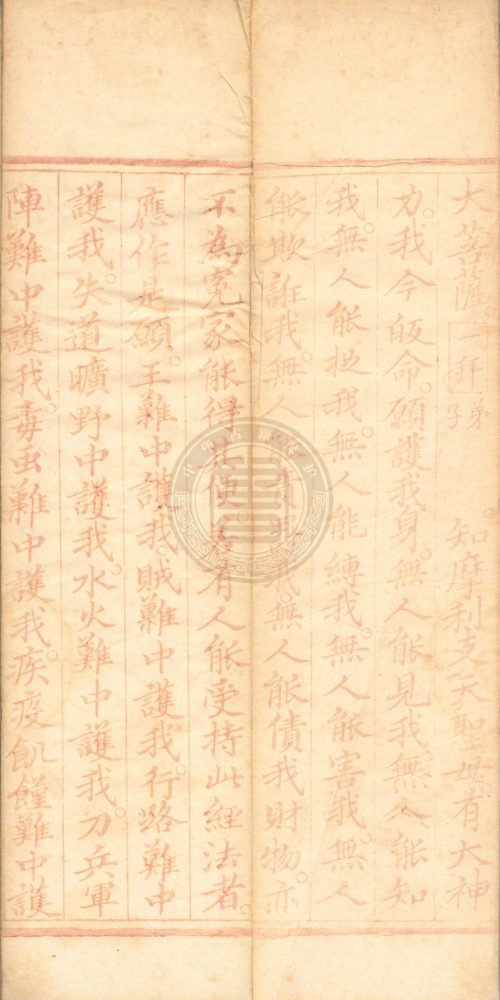 大菩薩一拜弟子 知摩利支天聖母有大神
力。我今皈命。願護我身。無人能見我。無人能知
我。無人能捉我。無人能縛我。無人能害我。無人
能欺誑我。無人 責罰我。無人能債我財物。亦
不為冤家能得其便。若有人能受持此經法者。
應作是願。王難中護我。賊難中護我。行路難中
護我。失道曠野中護我。水火難中護我。刀兵軍
陣難中護我。毒虫難中護我。疾疫飢饉難中護